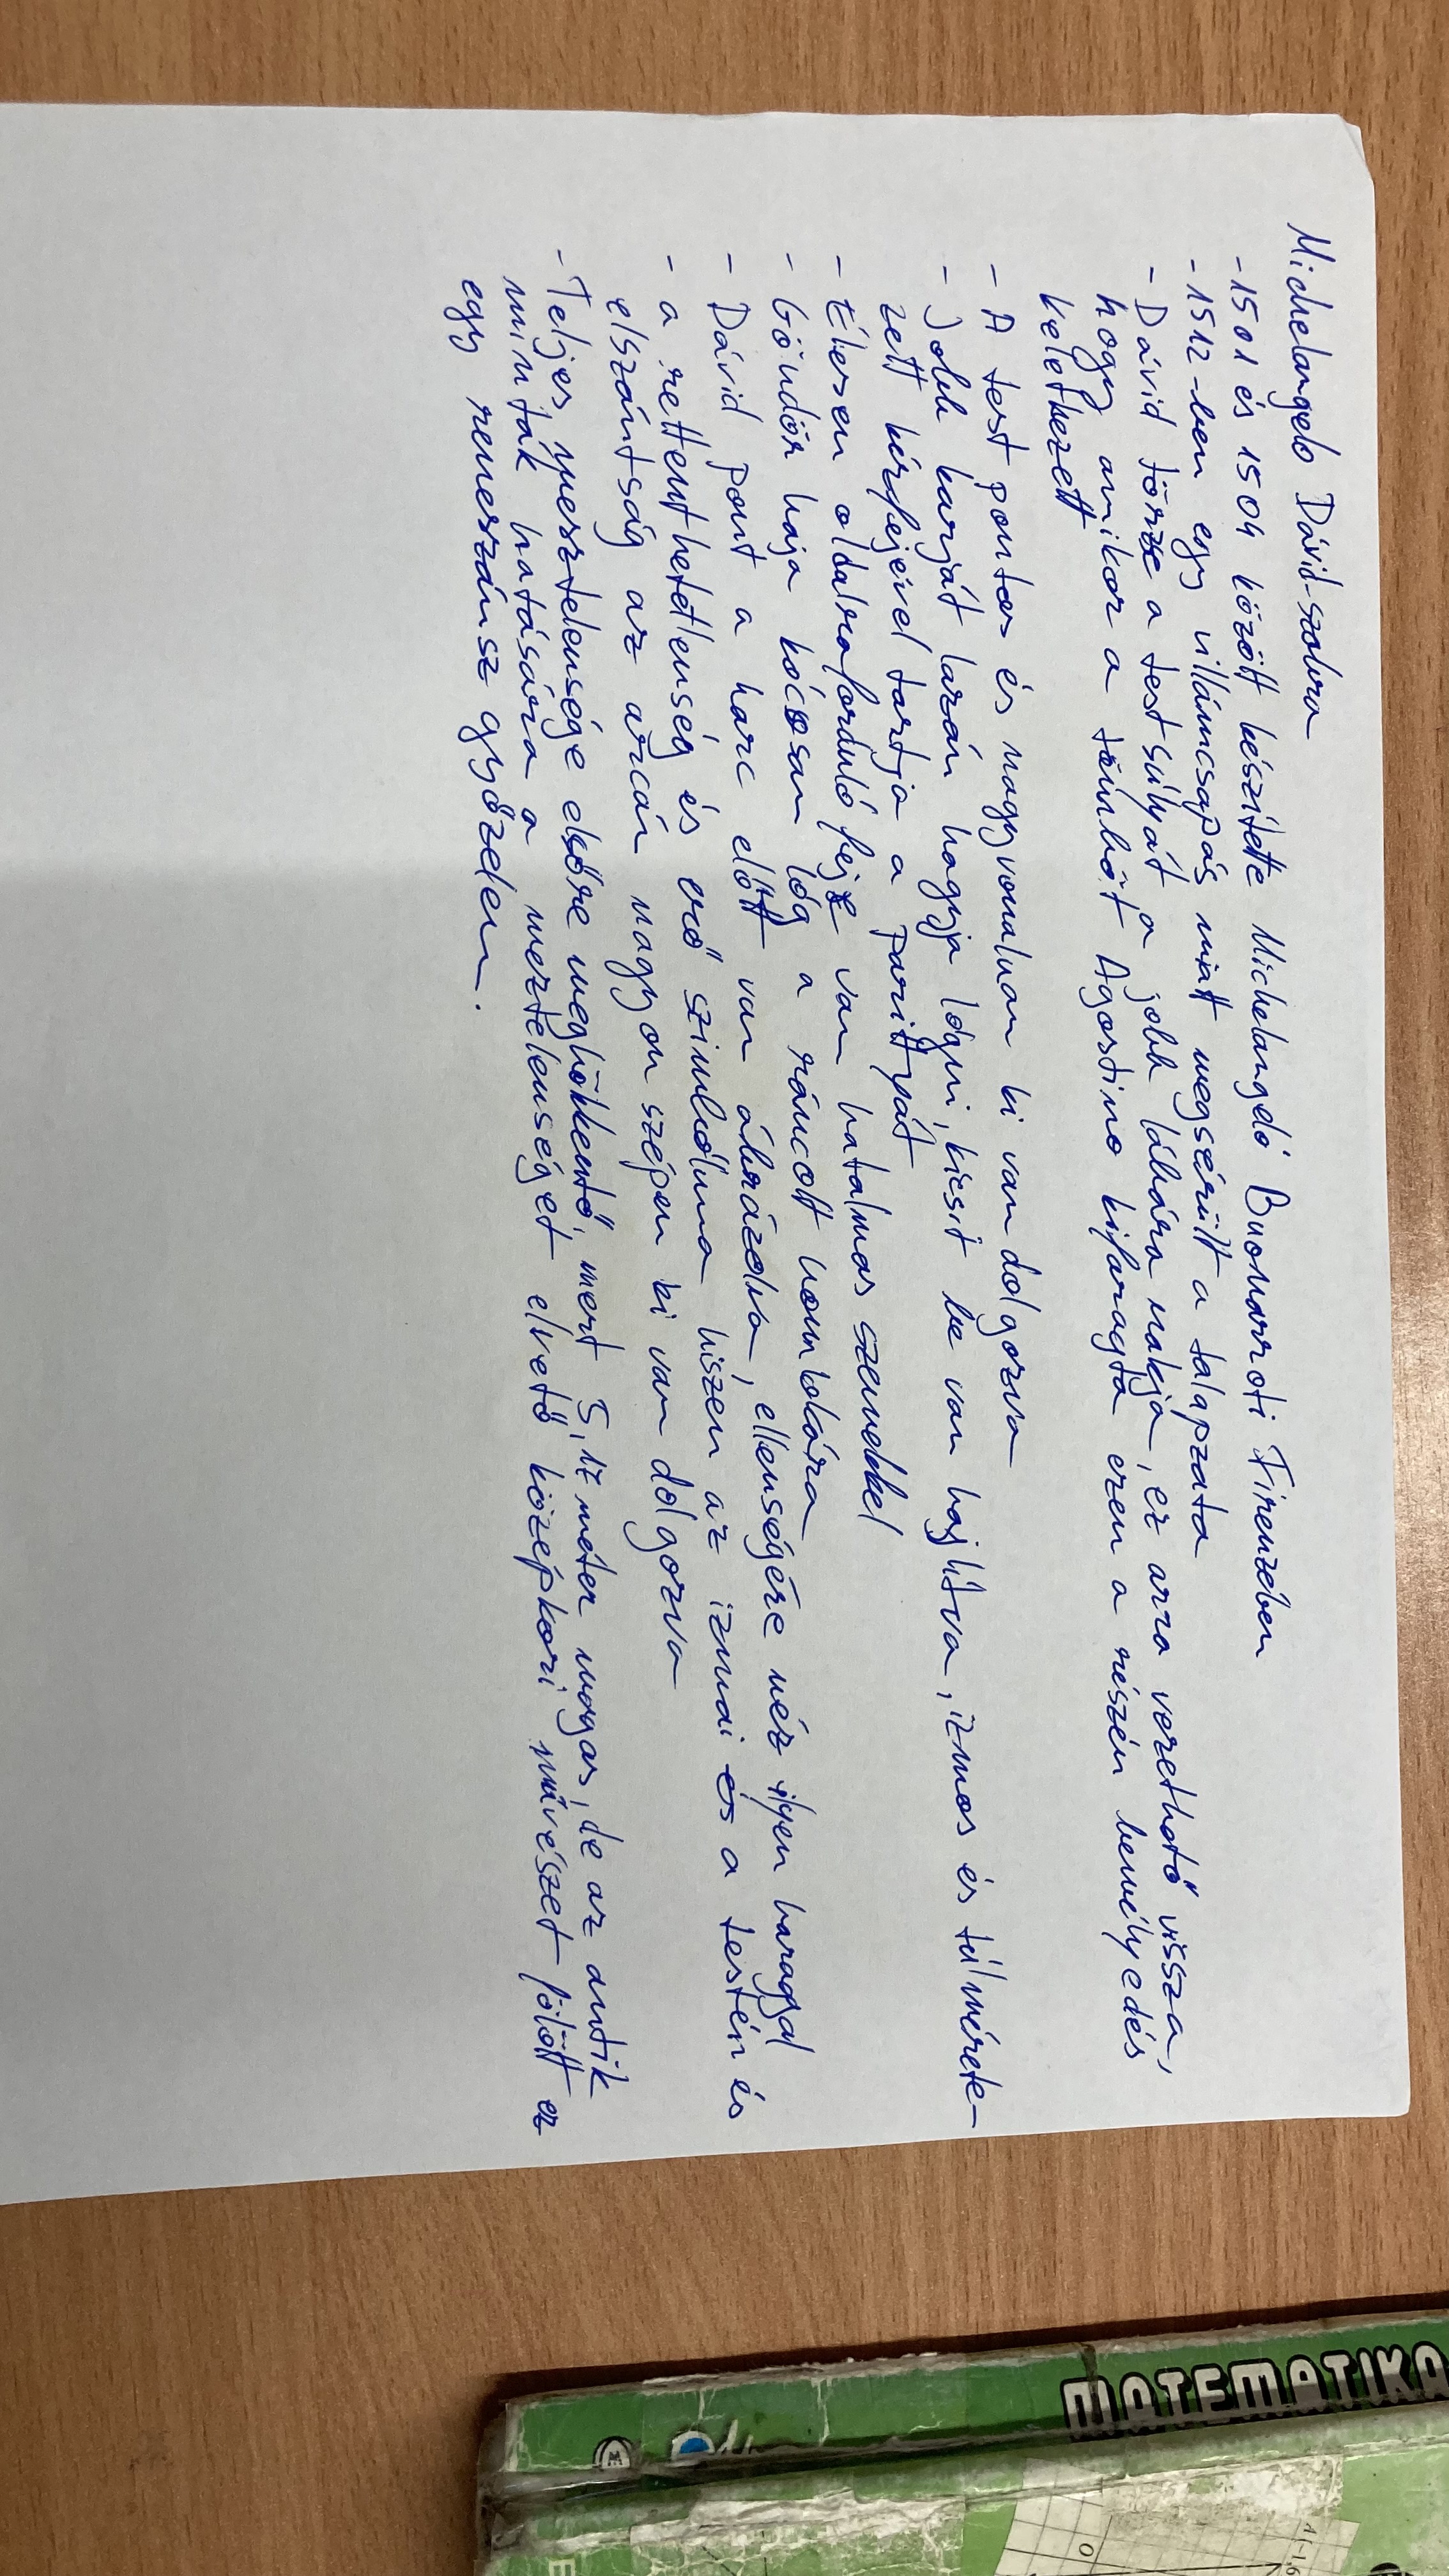 Michelangelo Dávid-szobra
- 1501 és 1504 között készítette Michelangeló Buonarroti Firenzében
- 1512-ben egy villámcsapás miatt megsérült a talapzata
- Dávid törzse a testsúlyát a jobb lábára rakja, ez arra vezethető vissza,
hogy amikor a tömböt Agostino kifaragta ezen a részén bemélyedés
keletkezett
- A test pontos és nagyvonalúan ki van dolgozva
- Jobb karját lazán hagyja lógni, kicsit be van hajlítva, izmos és túlmérete-
zett kézfejével tartja a parittyát
- Élesen oldalra forduló feje van hatalmas szemekkel
- Göndör haja kócosan lóg a ráncolt homlokára
- Dávid pont a harc előtt van ábrázolva, ellenségére néz ilyen haraggal
- a rettenthetetlenség és erő szimbóluma hiszen az izmai és a testén és
elszántság az arcán nagyon szépen ki van dolgozva
- Teljes mesztelensége elsőre meghökkentő, mert 5,17 méter magas, de az antik
minták hatására a meztelenséget elvető középkori művészet fölött ez
egy reneszánsz győzelem.
MATEMATIKA